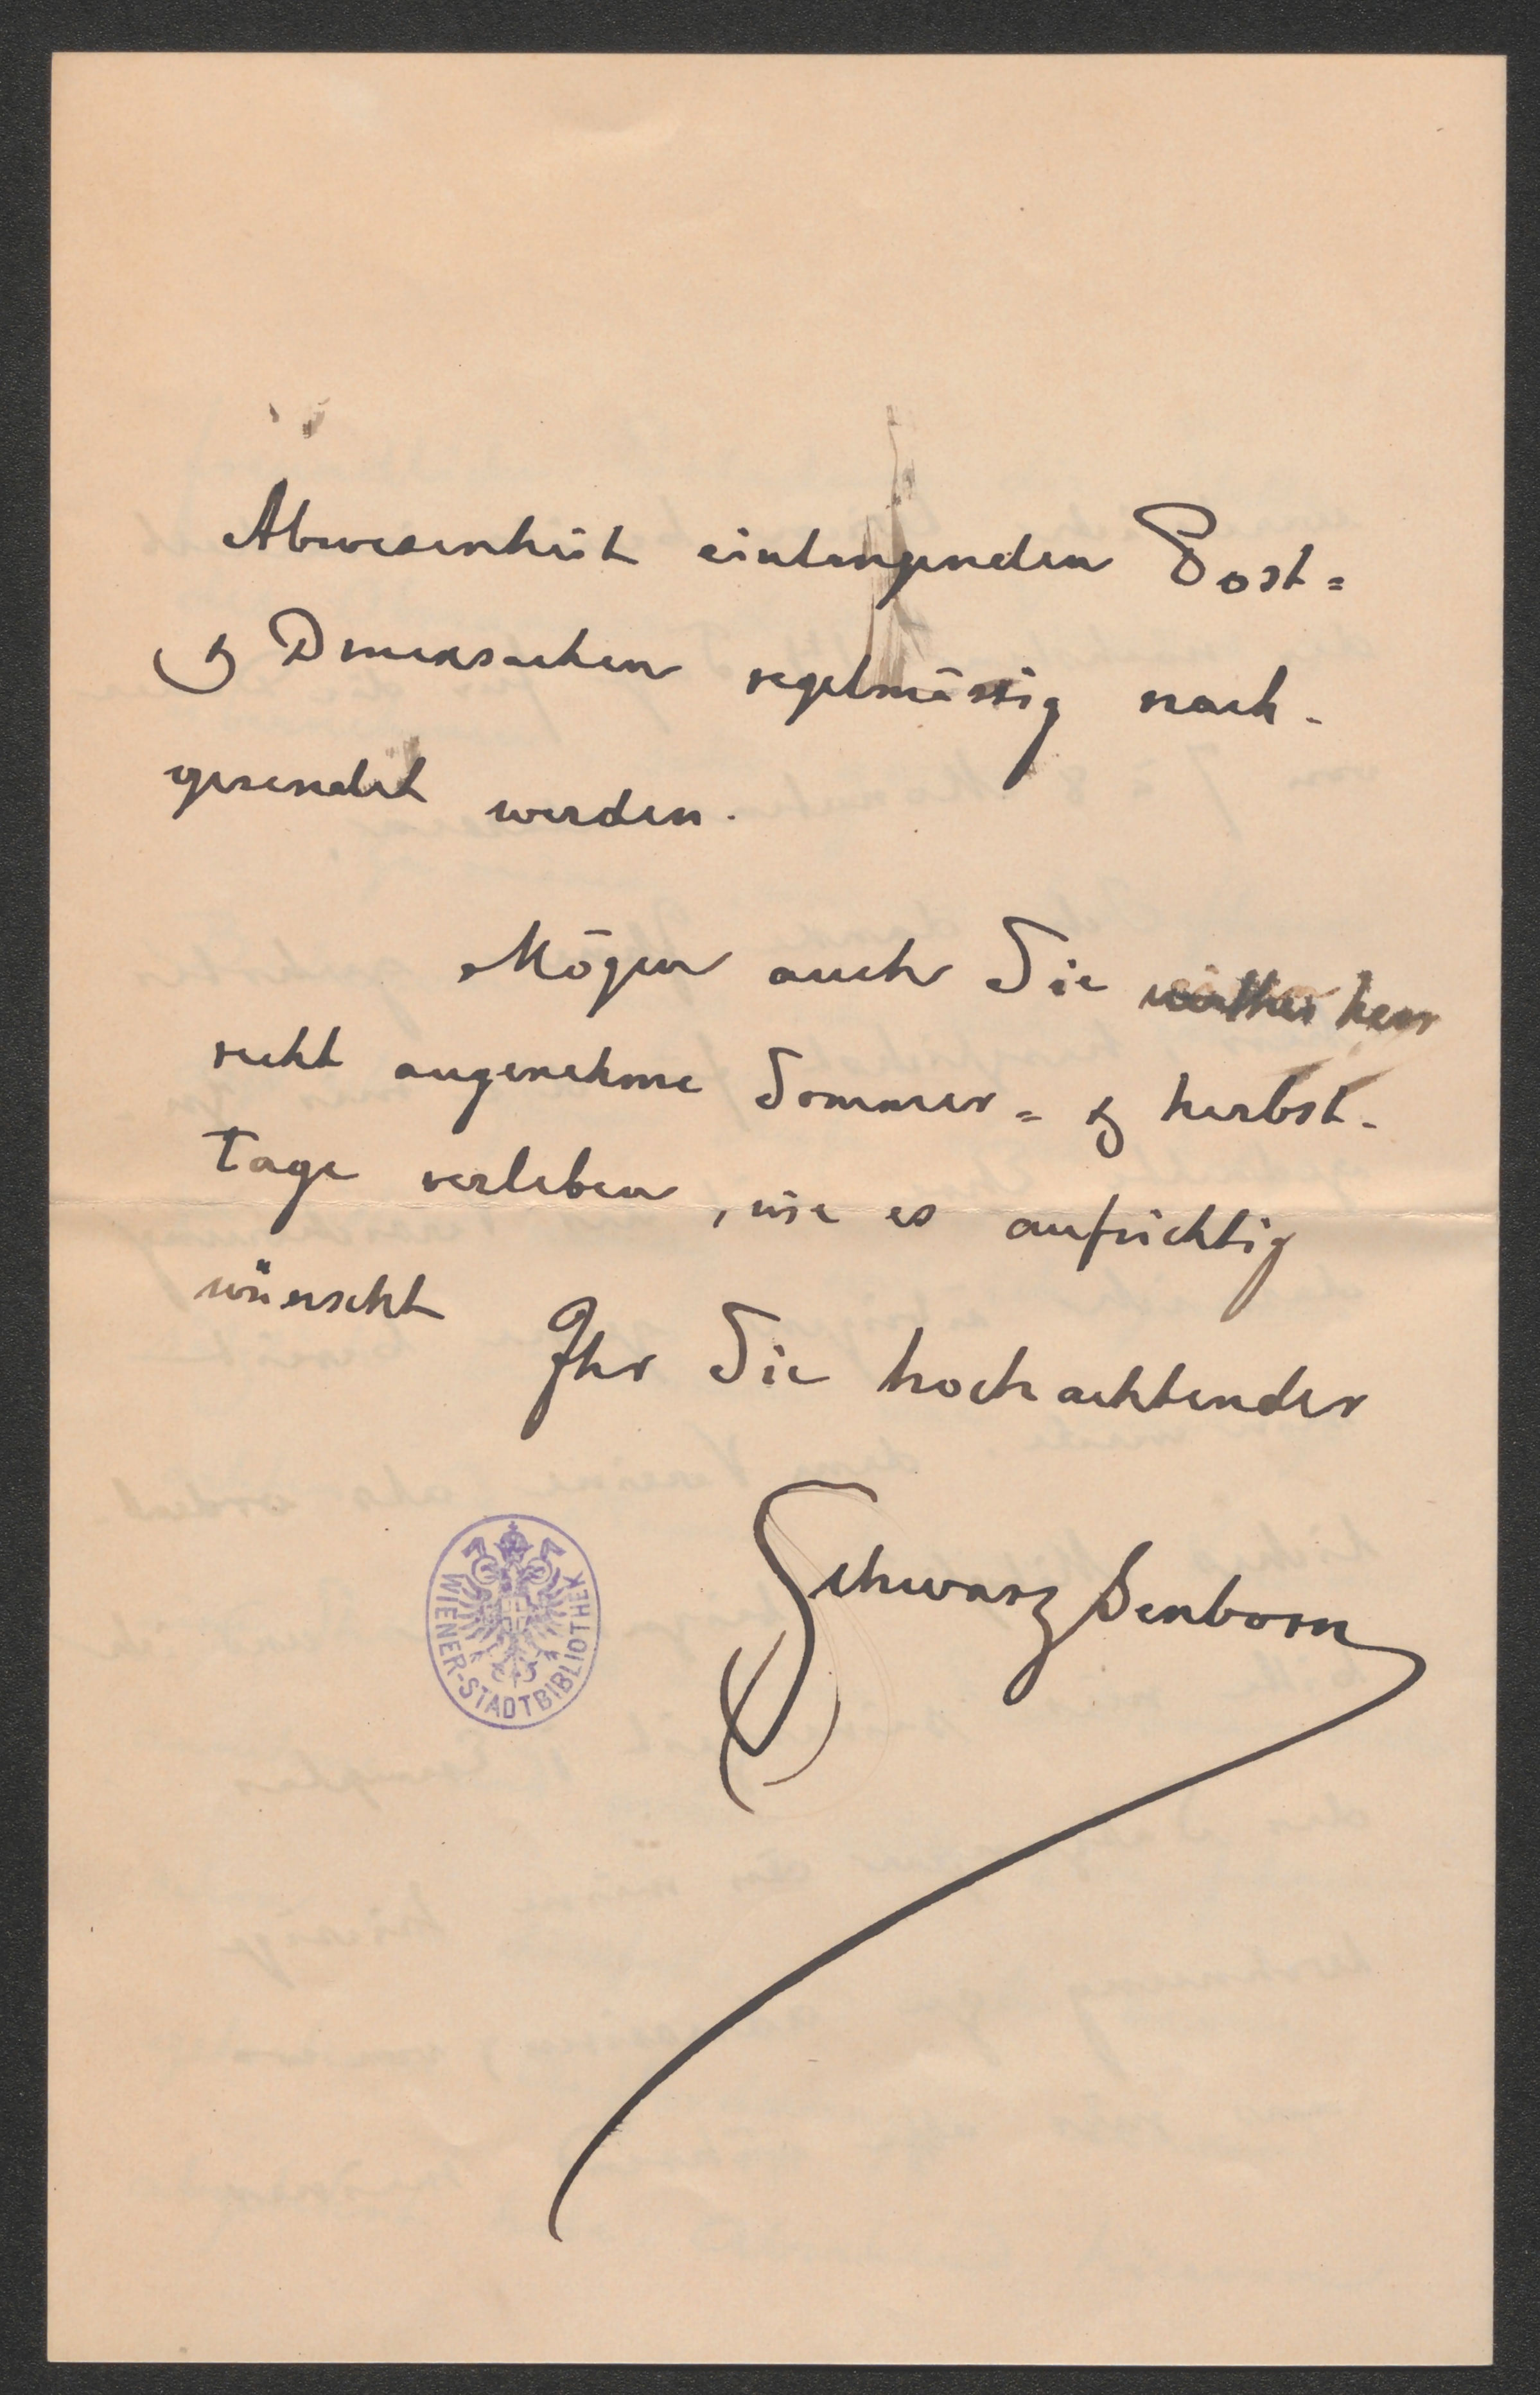 Abwesenheit einlangenden Post=
& Drucksachen regelmässig nach-
gesendet werden.
Mögen auch Sie werther Herr
recht angenehme Sommer= & Herbst-
Tage verleben, wie es aufrichtig
wünscht
Ihr Sie hochachtender
Schwarz Senborn
WIENER-STADTBIBLIOTHEK